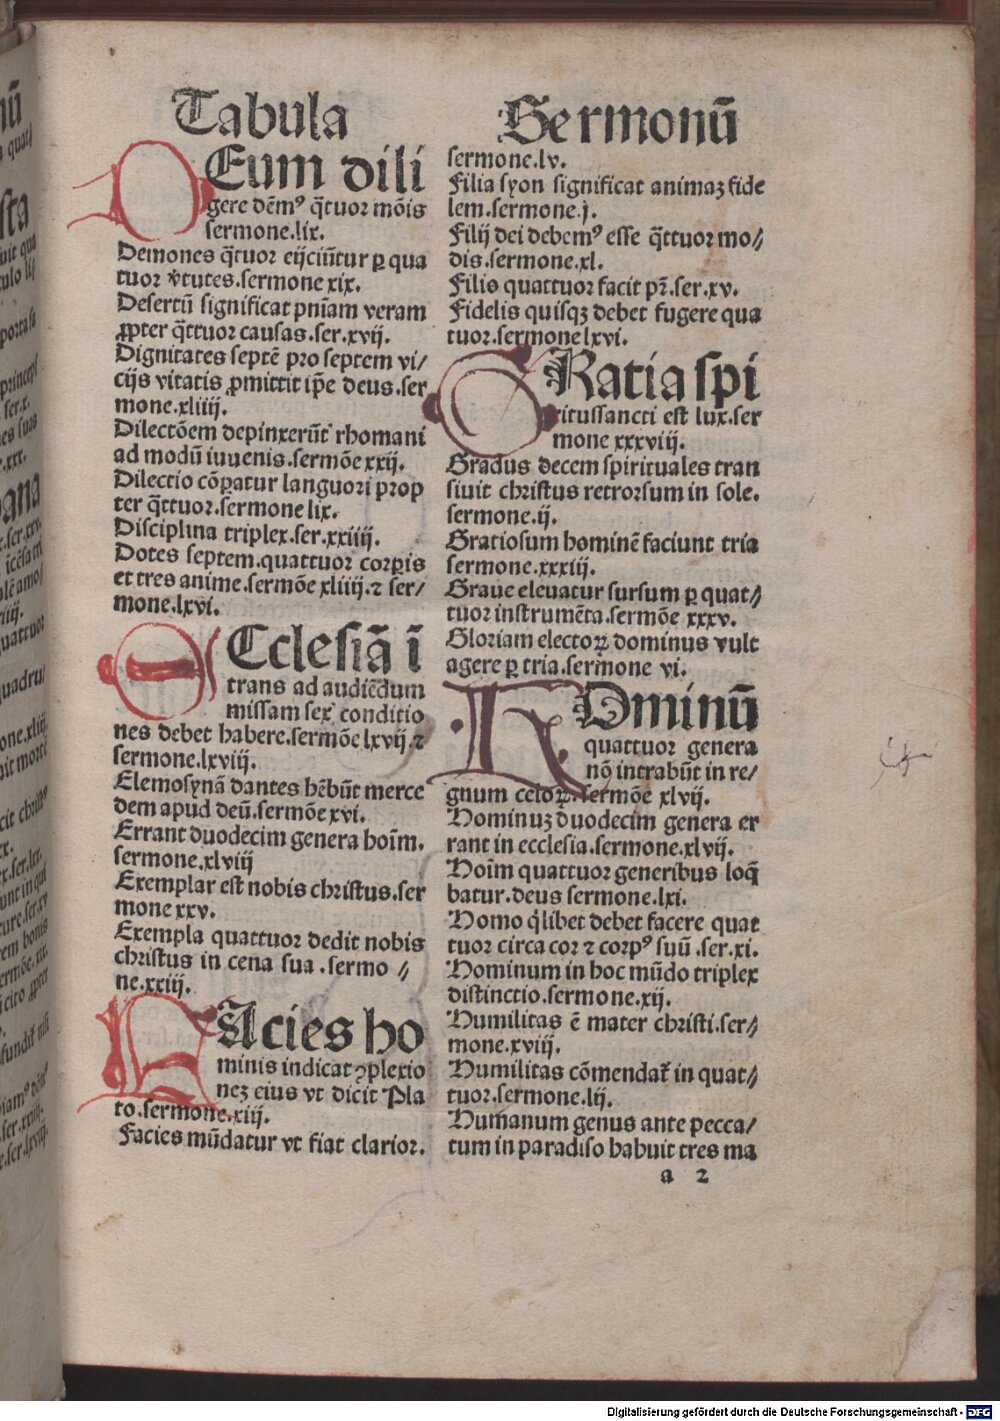 Tabula
DEum dili
gere dēmꝰ q̄tuor mōis
sermone.lix.
Demones q̄tuor eijciūtur ꝑ qua
tuor v̄tutes.sermone xix.
Desertū significat pn̄iam veram
ꝓpter q̄ttuor causas.ser.xvij.
Dignitates septē pro septem vi/
cijs vitatis ꝓmittit ip̄e deus.ser
mone.xliiij.
Dilectōem depinxerūt rhomani
ad modū iuuenis.sermōe xxij.
Dilectio cōꝑatur languori prop
ter q̄ttuor.sermone lix.
Disciplina triplex.ser.xxiiij.
Dotes septem.quattuor corꝑis
et tres anime.sermōe xliiij.⁊ ser/
mone.lxvi.
ECclesiā ī
trans ad audiēdum
missam sex conditio
nes debet habere.sermōe lxvij.⁊
sermone.lxviij.
Elemosynā dantes hēbūt merce
dem apud deū.sermōe xvi.
Errant duodecim genera hoīm.
sermone.xlviij
Exemplar est nobis christus.ser
mone xxv.
Exempla quattuor dedit nobis
christus in cena sua .sermo //
ne.xxiij.
FAcies ho
minis indicat ꝯplexio
neʒ eius vt dicit Pla
to.sermone.xiij.
Facies mūdatur vt fiat clarior.
Sermonū
sermone.lv.
Filia syon significat animaʒ fide
lem.sermone.j.
Filij dei debemꝰ esse q̄ttuor mo//
dis.sermone.xl.
Filis quattuor facit pr̄.ser.xv.
Fidelis quisqʒ debet fugere qua
tuor.sermone lxvi.
GRatia spi
ritussancti est lux.ser
mone xxxviij.
Gradus decem spirituales tran
siuit christus retrorsum in sole.
sermone.ij.
Gratiosum hominē faciunt tria
sermone.xxxiij.
Graue eleuatur sursum ꝑ quat//
tuor instrumēta.sermōe xxxv.
Gloriam electoꝝ dominus vult
agere ꝑ tria.sermone vi.
HOminū
quattuor genera
nō intrabūt in re/
gnum celoꝝ.sermōe xlvij.
Hominuʒ duodecim genera er
rant in ecclesia.sermone.xlvij.
Hoīm quattuor generibus loq̄
batur.deus sermone.lxi.
Homo q̄libet debet facere quat
tuor circa cor ⁊ corpꝰ suū .ser.xi.
Hominum in hoc mūdo triplex
distinctio.sermone.xij.
Humilitas ē mater christi.ser//
mone.xviij.
Humilitas cōmendat̄ in quat//
tuor.sermone.lij.
Humanum genus ante pecca/
tum in paradiso habuit tres ma
a 2
Digitalisierung gefördert durch die Deutsche Forschungsgemeinschaft - DFG